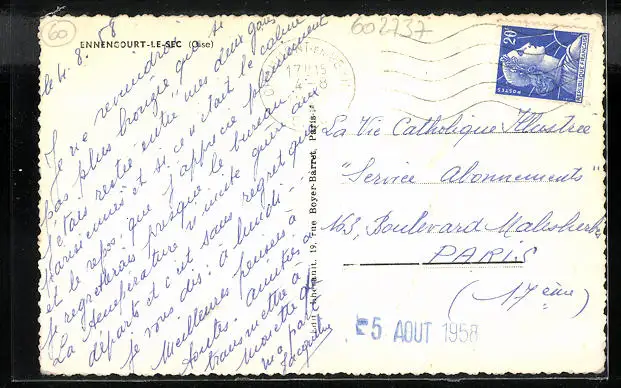 60
602737
ENNENCOURT-LE-SEC (Oise)
le 4. 8. 58
Je ne reviendrai
pas plus bronzée que si
j'étais restée entre mes deux gares
parisiennes et si ce n'était le calme
et le repos que j'apprécie pleinement
je regretterais presque le bureau
La température n'invite guère aux
départs et c'est sans regret que
je vous dis : à lundi
Meilleures pensées à
toutes. Amitiés à
transmettre à
Jacqueline
17H15
4-8
20
POSTES
REPUBLIQUE FRANÇAISE
19, rue Boyer-Barret, Paris
La Vie Catholique Illustrée
"Service Abonnements"
163, Boulevard Malesherbes
PARIS
(17ème)
5 AOUT 1958